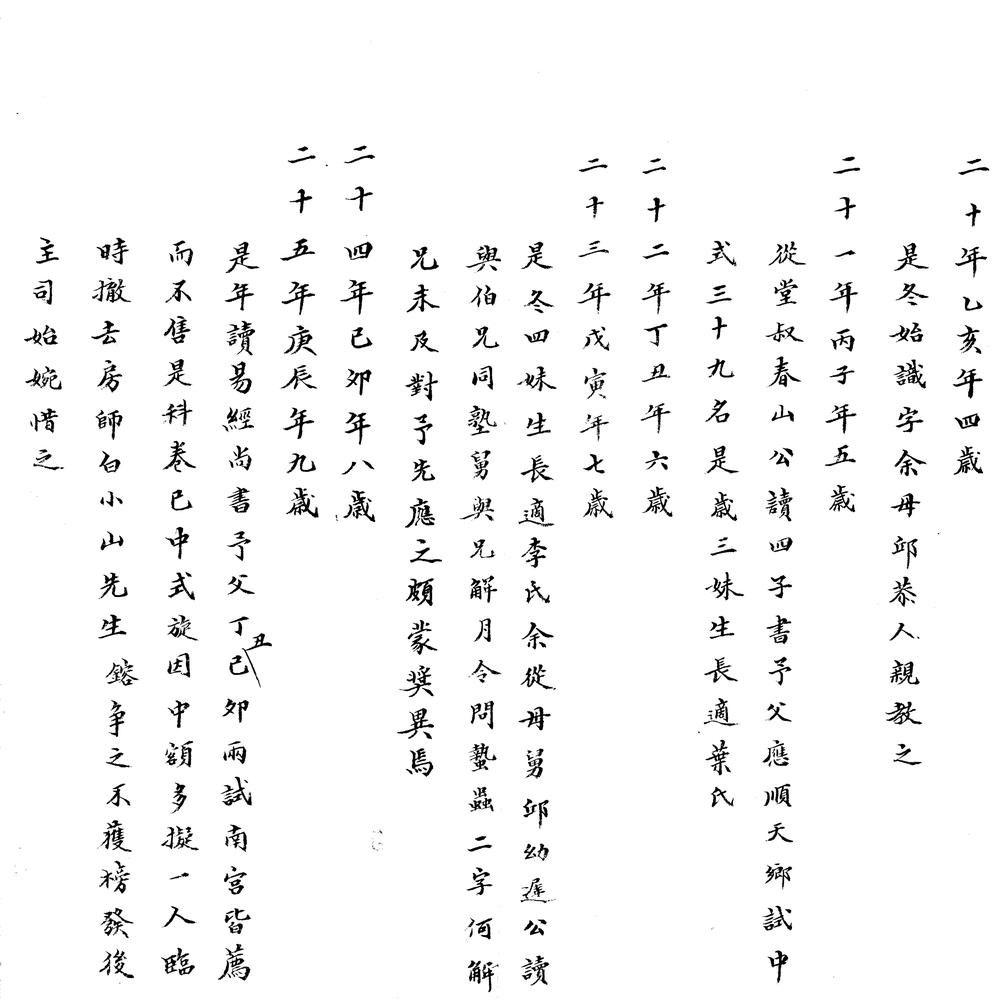 二十年乙亥年四歲
是冬始識字余母邱恭人親教之
二十一年丙子年五歲
從堂叔春山公讀四子書予父應順天鄉試中
式三十九名是歲三妹生長適葉氏
二十二年丁丑年六歲
二十三年戊寅年七歲
是冬四妹生長適李氏余從母舅邱幼遲公讀
與伯兄同塾舅與兄解月令問蟄蟲二字何解
兄未及對予先應之頗蒙奨異焉
二十四年已卯年八歲
二十五年庚辰年九歲
是年讀易經尚書予父丁丑已卯兩試南宮皆薦
而不售是科卷已中式旋因中額多擬一人臨
時撤去房師白小山先生鎔争之不獲榜發後
主司始婉惜之